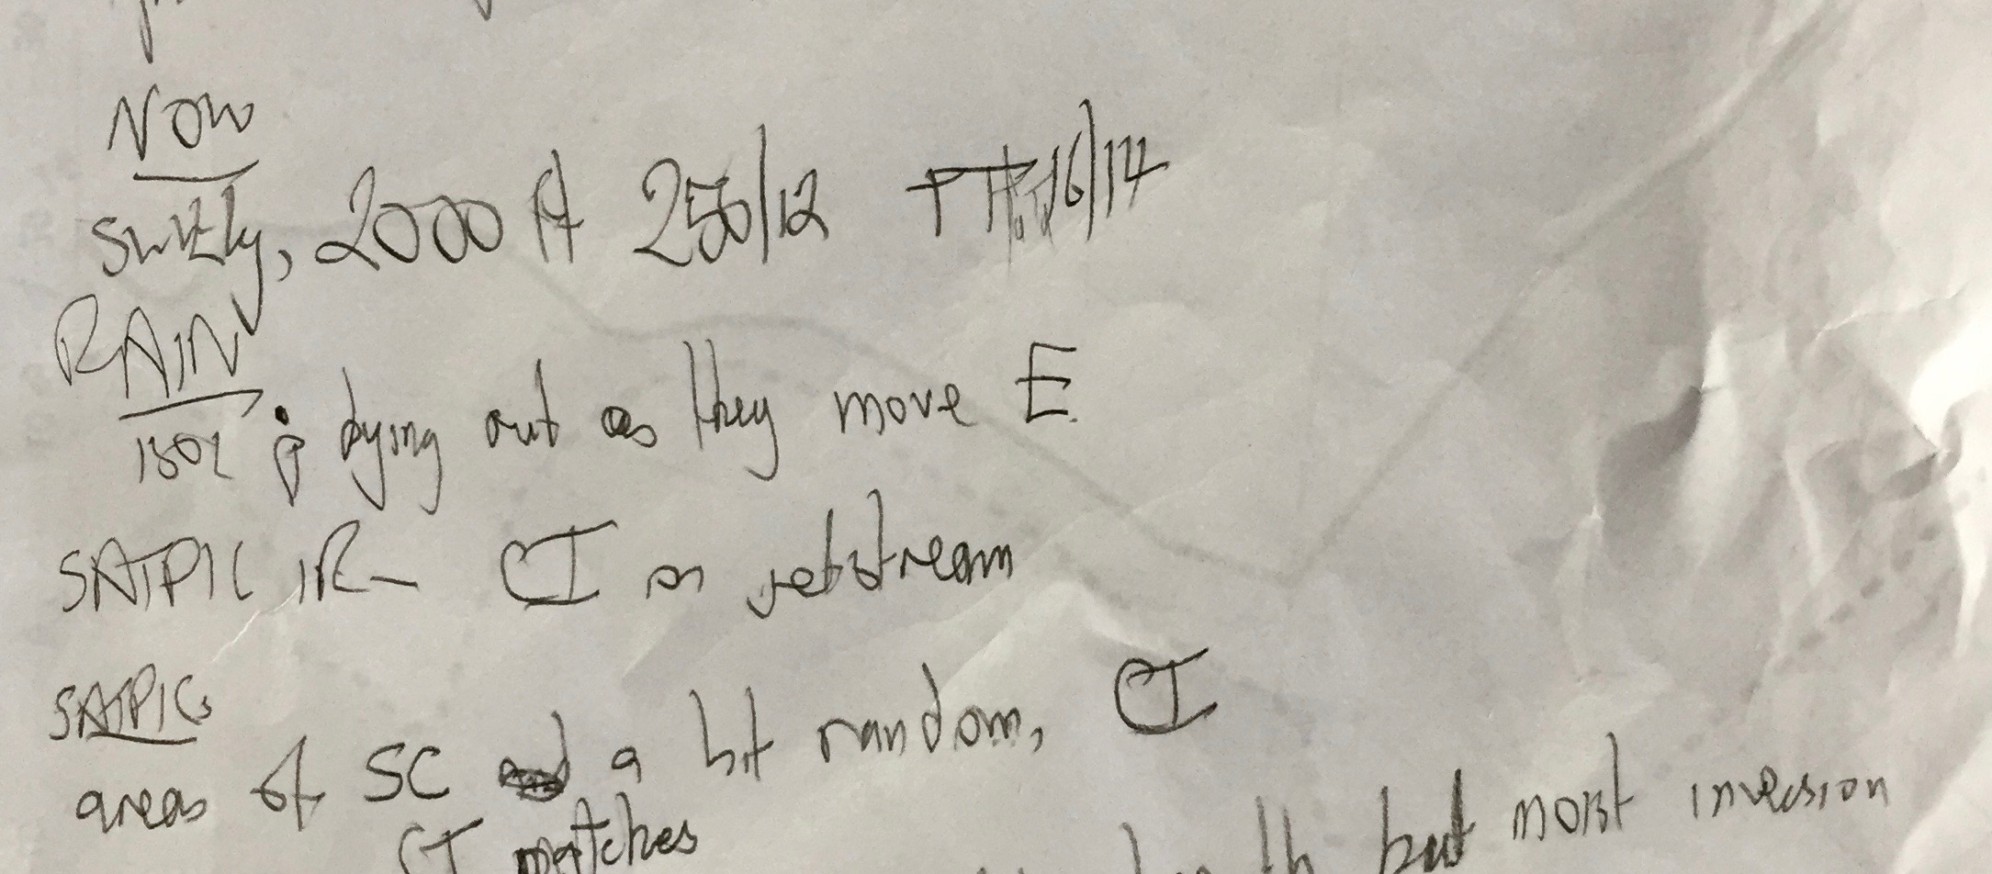 NOW
SW'ly, 2000 ft 250/12 TT 16/14
RAIN
isol dying out as they move E.
SATPIC IR - CI on jetstream
SATPIC
areas of SC a bit random, CI
CI matches
but moist inversion